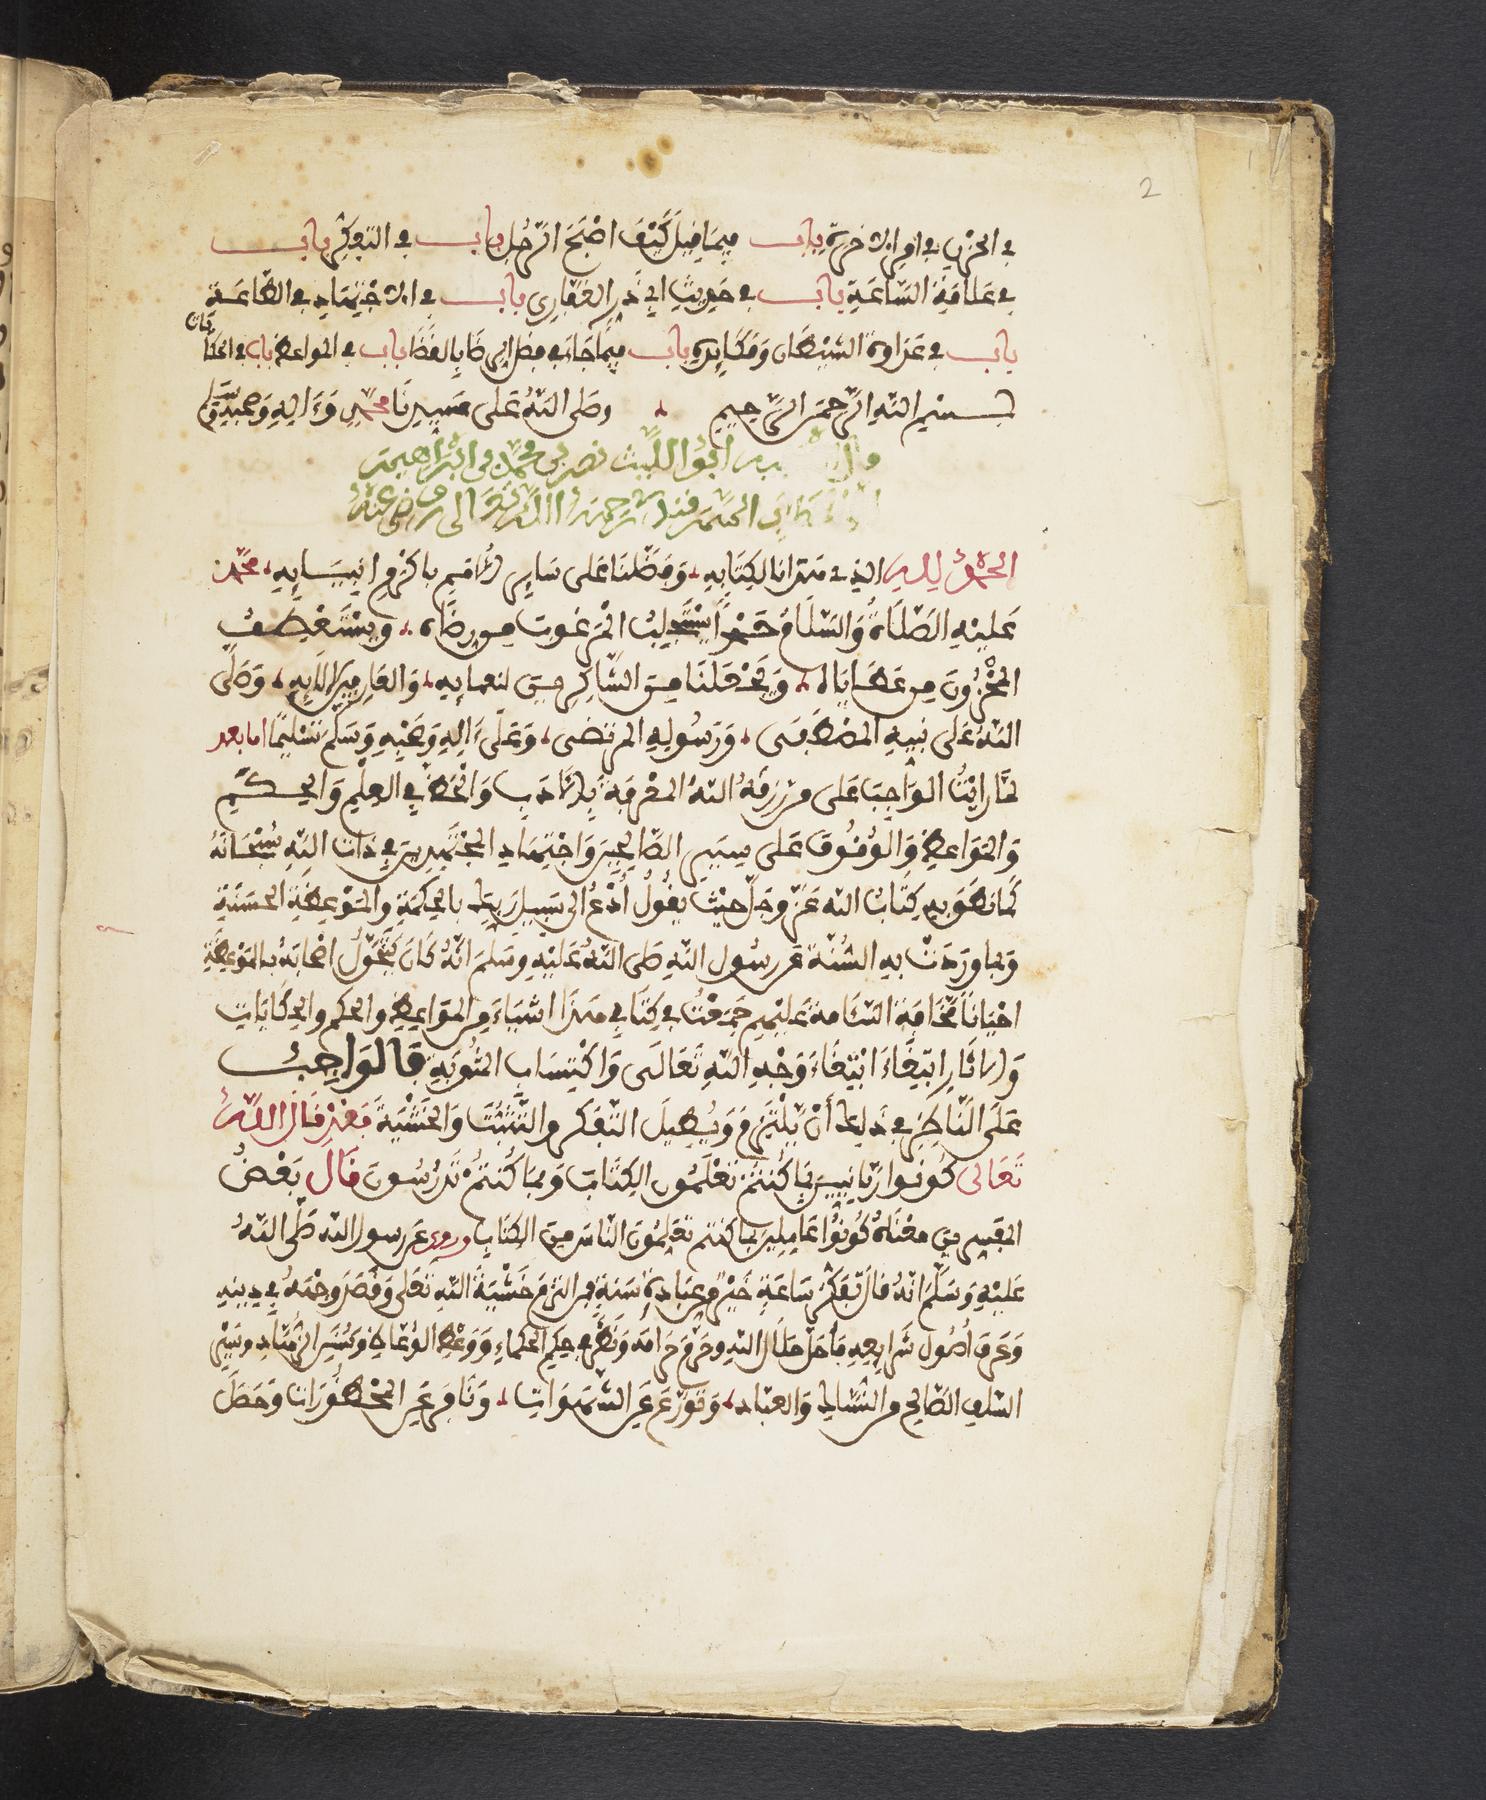 2
في الحزن في امر الاخرة باب فيما قيل كَيْفَ اصْبَحَ الرّجُل باب في التفكّر باب
في عَلَامَة السّاعَةِ باب في حَدِيثِ ابي ذَر الغفّارِي باب في الاجْتِهَادِ في الطّاعَة
باب في عَدَاوة الشيْطان وَمَكَايِدِهِ باب فيمَا جَاءَ في فضل الرضَا بِالقَضَا باب في المواعظ باب في الحكايات
بسم الله الرّحمن الرّحيم وصَلى اللهُ عَلى سَيدِنَا محمّدٍ وَءَالِهِ وَصحبِهِ وَسَلم
ابُوا اللّيث نصر بن محمّد بن ابْرَاهيمَ
السّمرقندي رَحمهُ اللهُ تعَالى ورضى عنهُ
الحمدُ للهِ الذي هدانا لكِتَابِهِ وَفَضَّلنَا عَلى سَايِر الأُمَم باكرَمِ انبِيَايِهِ محمّد
عَليْهِ الصّلاَةُ وَالسّلاَمُ حَمْداً يَسْتَجلِبُ المَرغوبَ من رضَاه وَيسْتَعْطِفُ
المخْزُونَ مِن عَطَاياه وَيَجْعَلنَا مِنَ الشّاكِرِينَ لنعمايِهِ وَالعَارِفِينَ لالايِهِ وَصَلى
اللهُ عَلى نبيهِ المصْطَفى وَرَسُولِهِ المرتضى وَعَلَى ءَالِهِ وَصَحْبِهِ وَسَلمَ تسْلِيمًا اما بعد
لمّا رَايْتُ الوَاجِبَ عَلى من رزَقَهُ اللهُ المعْرفَةَ بِالأدَبِ وَالْحَظ في العِلْمِ وَالحِكَمِ
وَالمَوَاعِظِ وَالوُقُوفَ عَلى سِيَرِ الصّالِحِينَ وَاجْتِهَادِ المجْتَهِدِينَ في ذَات اللهِ سُبْحَانَهُ
كمَا نطَقَ بِهِ كِتَابُ الله عَزّ وجَلّ حيْثُ يقُولُ ادْعُ الى سَبِيلِ رَبِّكَ بالحِكمَةِ وَالمَوْعِظَةِ الحسَنَةِ
وَبما وَرَدَتْ بِهِ السُّنّةُ عَن رسُول اللهِ صَلى اللهُ عَليْهِ وسَلمَ انّهُ كَانَ يتَخَوّلُ اصْحَابَهُ بِالمَوْعِظَةِ
احْيَاناً مخَافَةَ السّئَامَةِ عَليْهِم جَمَعْتُ في كِتَابِي هَذَا اشْيَاءَ مِن المَوَاعِظِ والحِكم والحكَايَاتِ
وَالاثَارِ ابتِغَاءَ ابْتِغَاءَ وَجْهِ اللهِ تَعَالَى وَاكْتِسَابِ المثُوبَةِ فَالوَاجِبُ
عَلَى النّاظِرِ في ذَلِك أَنْ يَلْتَزِمَ وَيُطِيلَ التّفَكر والتّثَبُّتَ وَالخَشْيَةَ فقدْ قَالَ اللهُ
تَعَالى كُونُوا رَبّانِيِينَ بمَا كُنتُمْ تعْلَمُون الكِتَابَ وَبمَا كُنتُمْ تَدْرُسُونَ قَالَ بَعْضُ
المفسرِين معْنَاهُ كُونُوا عَامِلِين بما كنتم تعَلِمُونَ النّاسَ مِنَ الكِتَابِ وروى عَن رسول الله صَلى اللهُ
عَليْهِ وَسَلّمَ انهُ قال تفَكُّرُ سَاعَةٍ خَيْرٌ مِن عِبَادَةِ سَنَةٍ فمن التزَمَ خَشْيَةَ اللهِ تعَلى وَقصَدَ وجْهَهُ في دِينِهِ
وَعَرفَ أُصُول شَرايِعِهِ فأحَلّ حلاَل اللهِ وحرّمَ حَرامَه وَنظَرَ في حِكمِ الحكماءِ وَوَعْظِ الوُعّاظِ وَسُنَن الزهَّادِ وسَيْرِ
السّلفِ الصّالح والنُّسّاكِ وَالعبّادِ وَتوَرّعَ عَن الشَّهَوَاتِ وَنَافرَ عَن المحْظُورَات وَحَصَلَ